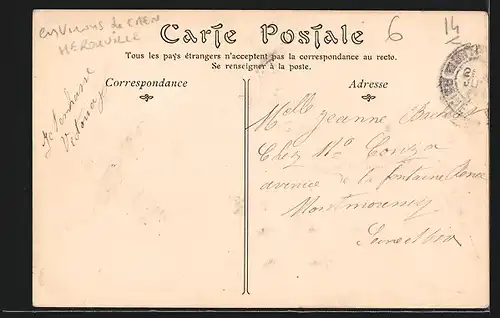 environs de CAEN
HEROUVILLE
6
14
Carte Postale
Tous les pays étrangers n'acceptent pas la correspondance au recto.
Se renseigner à la poste.
Correspondance
Adresse
Je t'embrasse
Melle Jeanne
Chez Me
avenue de la fontaine
Montmorency
Seine et Oise